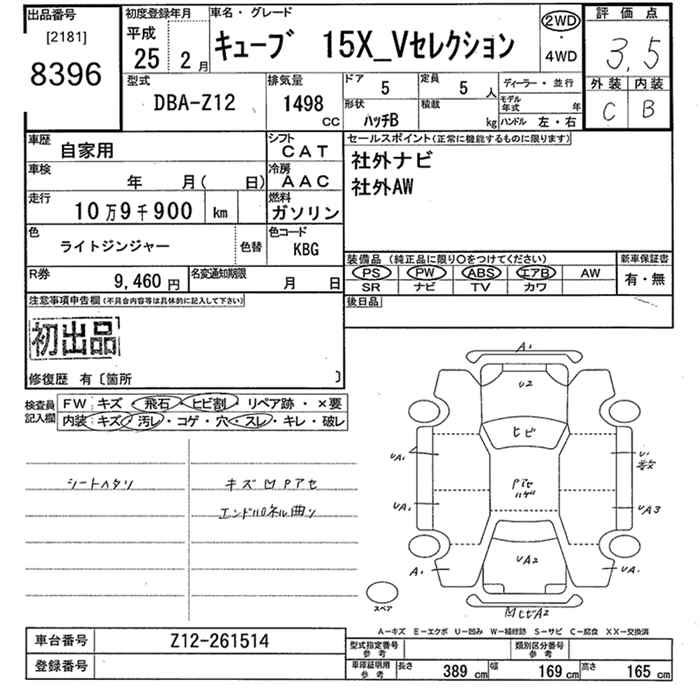 出品番号
[2181]
8396
初度登録年月
平成
25 2月
車名・グレード
キューブ 15X_Vセレクション
2WD
・
4WD
評価点
3.5
外装 内装
C B
型式
DBA-Z12
排気量
1498
CC
ドア
5
定員
5 人
形状
ハッチB
積載
kg
ディーラー・並行
モデル年式 年
ハンドル 左・右
車歴
自家用
シフト
CAT
車検
年 月( 日)
冷房
AAC
走行
10万9千900 km
燃料
ガソリン
色
ライトジンジャー
色替
色コード
KBG
R券
9,460円
名変通知期限
月 日
セールスポイント(正常に機能するものに限ります)
社外ナビ
社外AW
装備品 (純正品に限り○をつけてください)
PS PW ABS エアB AW
SR ナビ TV カワ
新車保証書
有・無
後日品
注意事項申告欄(不具合内容等は具体的に記入して下さい)
初出品
修復歴 有〔箇所 〕
検査員
記入欄
FW:キズ・飛石・ヒビ割・リペア跡・×要
内装:キズ・汚レ・コゲ・穴・スレ・キレ・破レ
シートヘタリ
キズ凹Pアセ
エンドパネル曲リ
A1
U2
ヒビ
Pアセ
ハゲ
UA1
UA1
A1
U1
数
UA3
UA1
UA2
凹ヒビA2
スペア
A-キズ E-エクボ U-凹み W-補修跡 S-サビ C-腐食 XX-交換済
車台番号
Z12-261514
登録番号
型式指定番号
参考
類別区分番号
参考
車庫証明用
参考
長さ 389 cm 幅 169 cm 高さ 165 cm